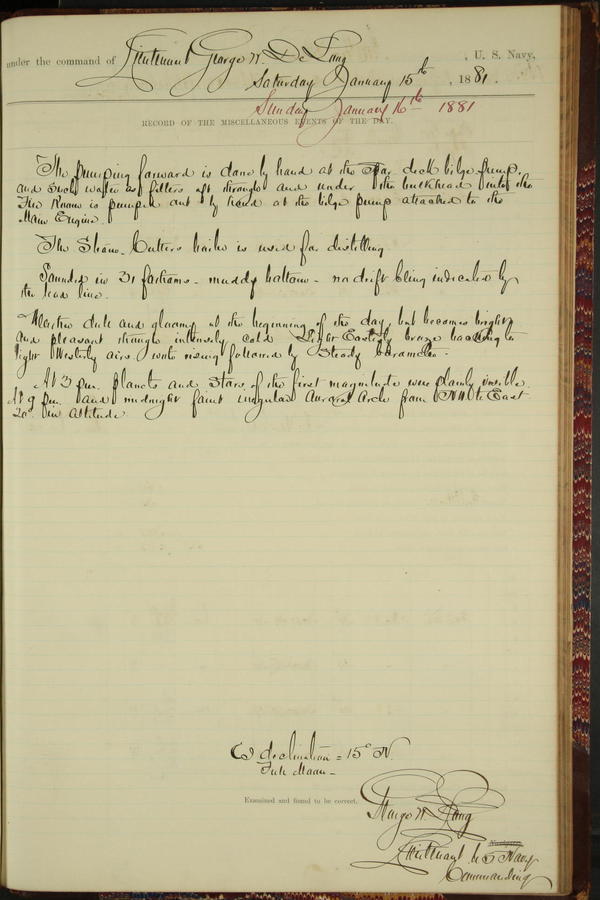 under the command of Lieutenant George W. De Long, U. S. Navy,
Saturday January 15th, 1881.
Sunday January 16th 1881
RECORD OF THE MISCELLANEOUS EVENTS OF THE DAY.
The pumping forward is done by hand at the Spar deck bilge pump,
and such water as filters aft through and under the bulkhead into the
Fire Room is pumped out by hand at the bilge pump attached to the
Main Engine.
The Steam Cutters boiler is used for distilling
Sounded in 31 fathoms - muddy bottom - no drift being indicated by
the lead line.
Weather dull and gloomy at the beginning of the day, but becomes bright
and pleasant though intensely cold. Light Easterly breeze backing to
light Westerly airs with rising followed by Steady barometer.
At 3 pm. planets and stars of the first magnitude were plainly visible.
At 9 pm. and midnight faint irregular Auroral Arch from NW to East
20° in altitude.
declination = 15° N.
Full Moon -
Examined and found to be correct.
George W. De Long
Lieutenant U S Navy
Commanding